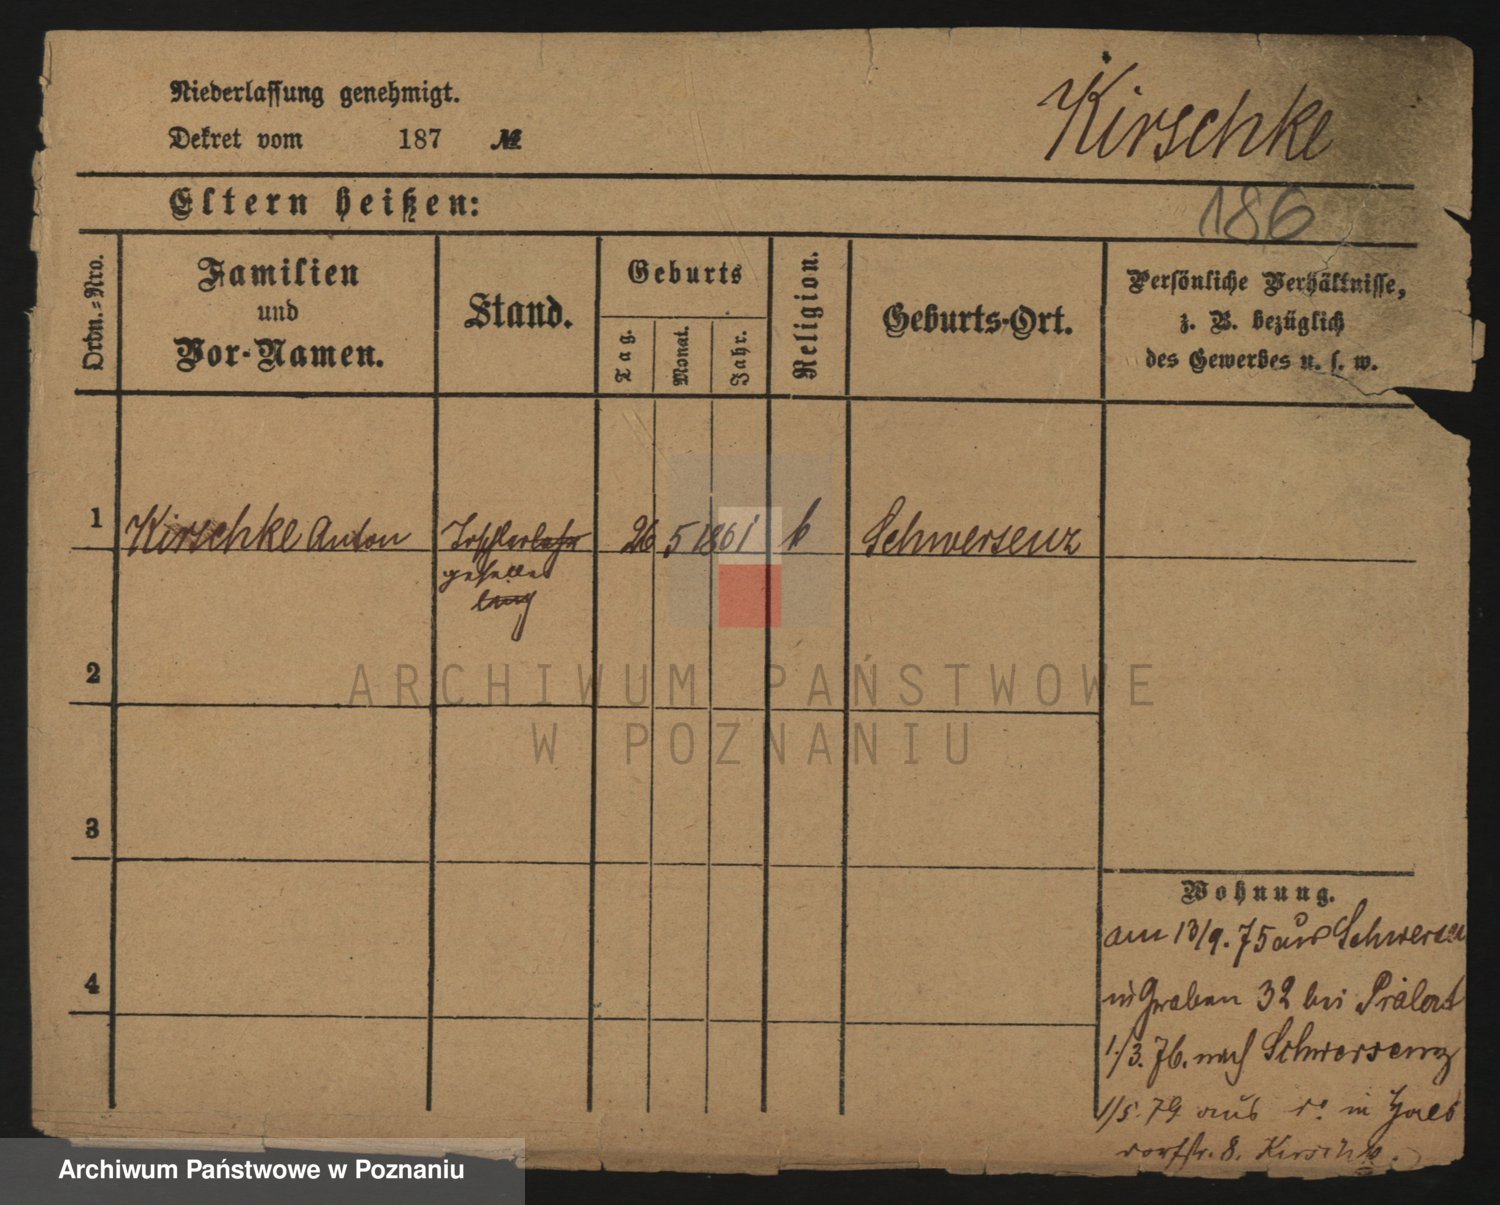 Niederlassung genehmigt.
Dekret vom 187 №
Kirschke
Eltern heißen:
186
Ordn.-Nro.
Familien
und
Vor-Namen.
Stand.
Geburts
Tag.
Monat.
Jahr.
Religion.
Geburts-Ort.
Persönliche Verhältnisse,
z. B. bezüglich
des Gewerbes u. s. w.
1 Kirschke Anton 26 5 1861 k Schwersenz
2
3
4
Wohnung.
am 13/9. 75 aus Schwersen
in Graben 32 bei Prälat
1./3. 76. nach Schwersenz
1/5. 79 aus in
8. Kirschke.
ARCHIWUM PAŃSTWOWE
W POZNANIU
Archiwum Państwowe w Poznaniu